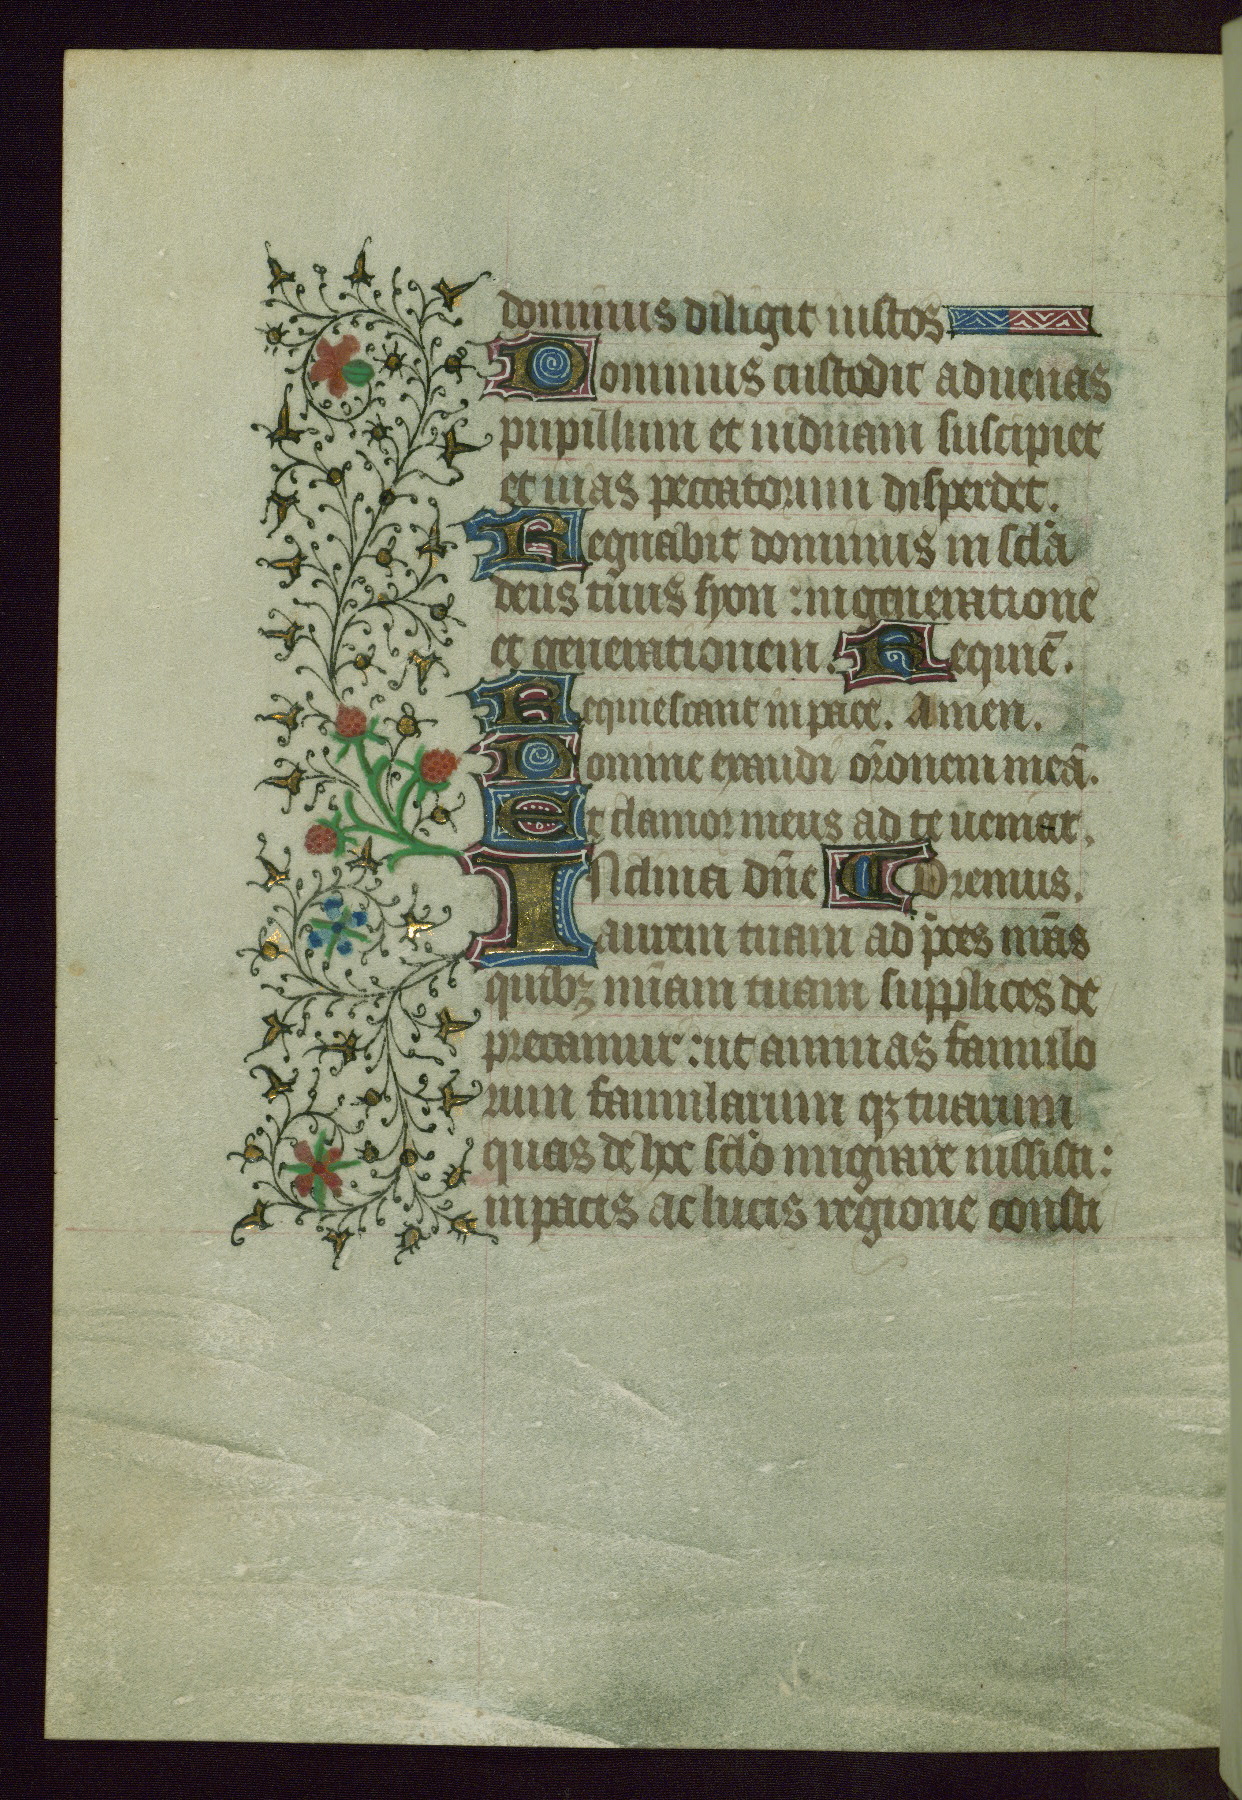 dominus diligit iustos
Dominus custodit aduenas
pupillum et uiduam suscipiet
et uias peccatorum disperdet.
Regnabit dominus in scl̄a
deus tuus syon : in generatione
et generationem. Requiē.
Requiescant in pace. Amen.
Domine exaudi or̄onem meā.
Et clamor meus ad te ueniat.
INclina dn̄e Oremus.
aurem tuam ad p̄ces nr̄as
quibꝫ mīam tuam supplices de
precamur : ut animas famulo
rum famularum qꝫ tuarum
quas de hoc scl̄o migrare iussisti :
in pacis ac lucis regione consti